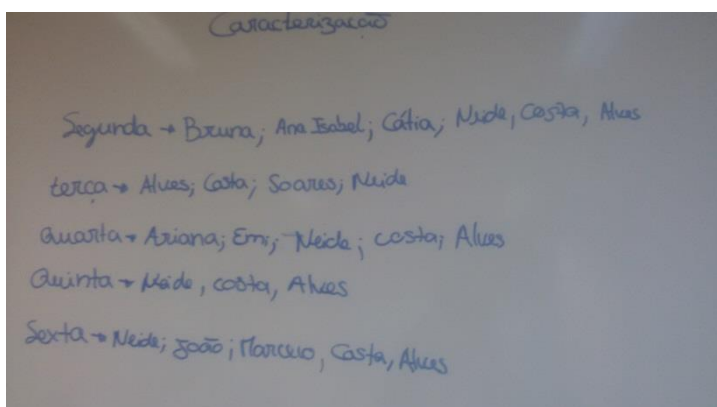 Caracterização
Segunda → Bruna; Ana Isabel; Cátia; Neide, Costa, Alves
terça → Alves; Costa; Soares; Neide
Quarta → Ariana; Emi; Neide; costa; Alves
Quinta → Neide, costa, Alves
Sexta → Neide; João; Marcelo, Costa, Alves